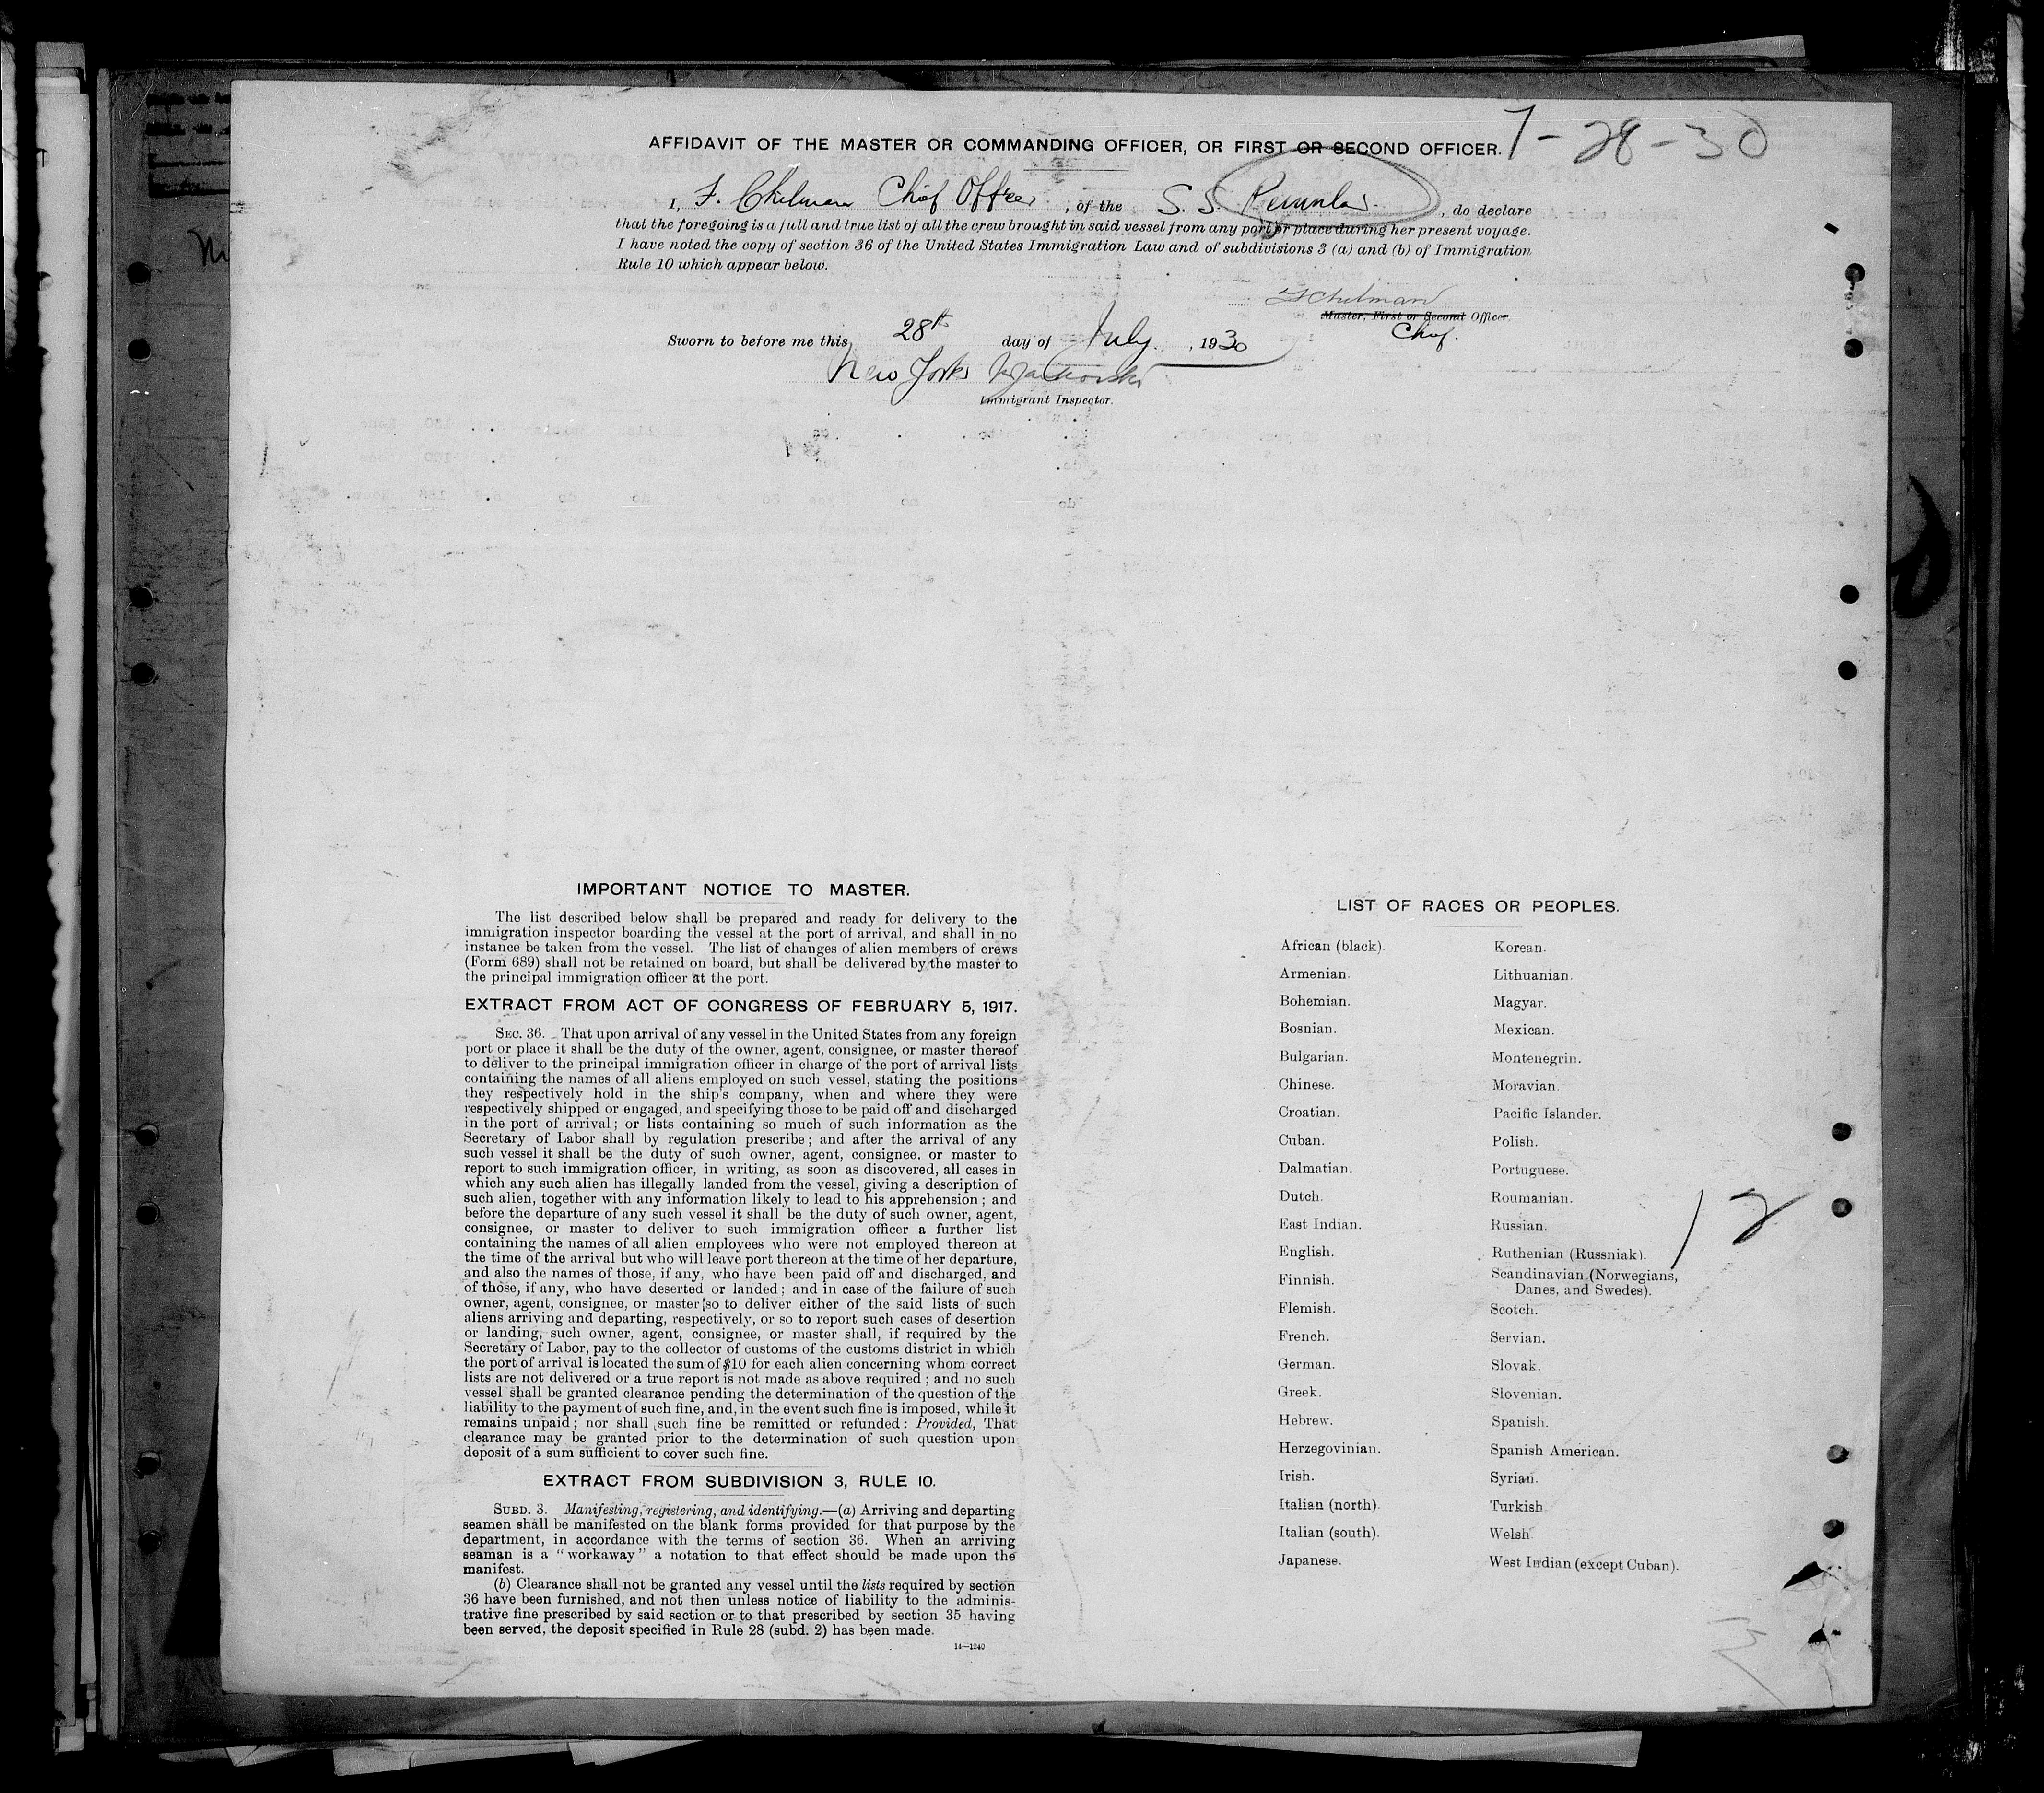 AFFIDAVIT OF THE MASTER OR COMMANDING OFFICER, OR FIRST OR SECOND OFFICER. 7-28-30
I, F. Chilman Chief Officer, of the S.S., do declare
that the foregoing is a full and true list of all the crew brought in said vessel from any port or place during her present voyage.
I have noted the copy of section 36 of the United States Immigration Law and of subdivisions 3 (a) and (b) of Immigration
Rule 10 which appear below.
F Chilman
Master, First or Second Officer.
Chief.
Sworn to before me this 28th day of July, 1930
New York
Immigrant Inspector.
IMPORTANT NOTICE TO MASTER.
The list described below shall be prepared and ready for delivery to the
immigration inspector boarding the vessel at the port of arrival, and shall in no
instance be taken from the vessel. The list of changes of alien members of crews
(Form 689) shall not be retained on board, but shall be delivered by the master to
the principal immigration officer at the port.
EXTRACT FROM ACT OF CONGRESS OF FEBRUARY 5, 1917.
SEC. 36. That upon arrival of any vessel in the United States from any foreign
port or place it shall be the duty of the owner, agent, consignee, or master thereof
to deliver to the principal immigration officer in charge of the port of arrival lists
containing the names of all aliens employed on such vessel, stating the positions
they respectively hold in the ship's company, when and where they were
respectively shipped or engaged, and specifying those to be paid off and discharged
in the port of arrival; or lists containing so much of such information as the
Secretary of Labor shall by regulation prescribe; and after the arrival of any
such vessel it shall be the duty of such owner, agent, consignee, or master to
report to such immigration officer, in writing, as soon as discovered, all cases in
which any such alien has illegally landed from the vessel, giving a description of
such alien, together with any information likely to lead to his apprehension; and
before the departure of any such vessel it shall be the duty of such owner, agent,
consignee, or master to deliver to such immigration officer a further list
containing the names of all alien employees who were not employed thereon at
the time of the arrival but who will leave port thereon at the time of her departure,
and also the names of those, if any, who have been paid off and discharged, and
of those, if any, who have deserted or landed; and in case of the failure of such
owner, agent, consignee, or master so to deliver either of the said lists of such
aliens arriving and departing, respectively, or so to report such cases of desertion
or landing, such owner, agent, consignee, or master shall, if required by the
Secretary of Labor, pay to the collector of customs of the customs district in which
the port of arrival is located the sum of $10 for each alien concerning whom correct
lists are not delivered or a true report is not made as above required; and no such
vessel shall be granted clearance pending the determination of the question of the
liability to the payment of such fine, and, in the event such fine is imposed, while it
remains unpaid; nor shall such fine be remitted or refunded: Provided, That
clearance may be granted prior to the determination of such question upon
deposit of a sum sufficient to cover such fine.
EXTRACT FROM SUBDIVISION 3, RULE 10.
SUBD. 3. Manifesting, registering, and identifying.—(a) Arriving and departing
seamen shall be manifested on the blank forms provided for that purpose by the
department, in accordance with the terms of section 36. When an arriving
seaman is a "workaway" a notation to that effect should be made upon the
manifest.
(b) Clearance shall not be granted any vessel until the lists required by section
36 have been furnished, and not then unless notice of liability to the adminis-
trative fine prescribed by said section or to that prescribed by section 35 having
been served, the deposit specified in Rule 28 (subd. 2) has been made.
14—1240
LIST OF RACES OR PEOPLES.
African (black).
Armenian.
Bohemian.
Bosnian.
Bulgarian.
Chinese.
Croatian.
Cuban.
Dalmatian.
Dutch.
East Indian.
English.
Finnish.
Flemish.
French.
German.
Greek.
Hebrew.
Herzegovinian.
Irish.
Italian (north).
Italian (south).
Japanese.
Korean.
Lithuanian.
Magyar.
Mexican.
Montenegrin.
Moravian.
Pacific Islander.
Polish.
Portuguese.
Roumanian.
Russian.
Ruthenian (Russniak).
Scandinavian (Norwegians,
Danes, and Swedes).
Scotch.
Servian.
Slovak.
Slovenian.
Spanish.
Spanish American.
Syrian.
Turkish
Welsh
West Indian (except Cuban).
12